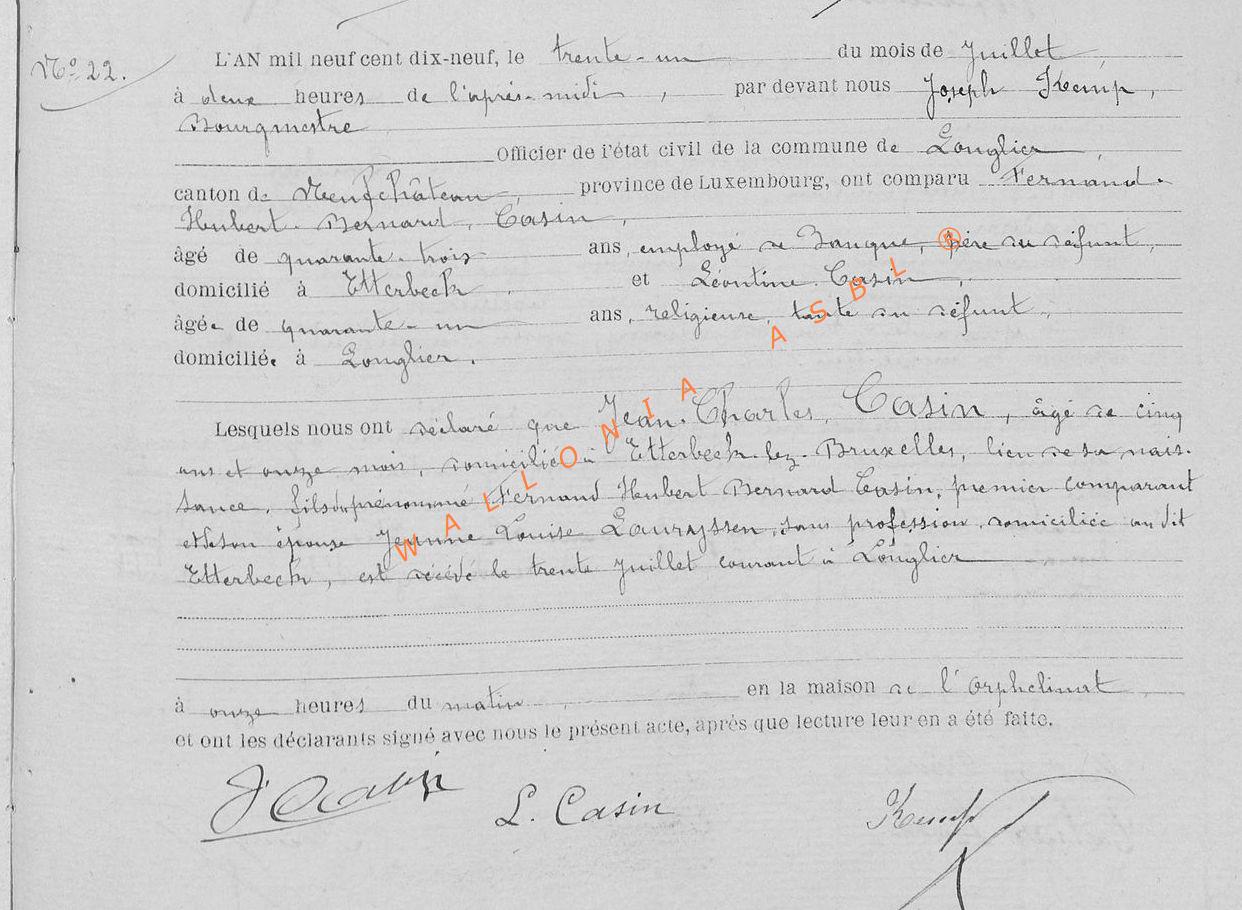 N° 22.
L'AN mil neuf cent dix-neuf, le trente-un du mois de Juillet,
à deux heures de l'après-midi, par devant nous Joseph Kemp,
Bourgmestre
Officier de l'état civil de la commune de Longlier,
canton de Neufchâteau, province de Luxembourg, ont comparu Fernand-
Hubert-Bernard, Casin,
âgé de quarante-trois ans, employé de Banque, père du défunt,
domicilié à Etterbeck et Léontine Casin,
âgée de quarante-un ans, religieuse, tante du défunt,
domiciliée à Longlier.
Lesquels nous ont déclaré que Jean-Charles, Casin, âgé de cinq
ans et onze mois, domicilié à Etterbeck-lez-Bruxelles, lieu de sa nais-
sance, fils du prénommé Fernand Hubert Bernard Casin, premier comparant
et de son épouse Jeanne Louise Lauryssen, sans profession, domiciliée au dit
Etterbeck, est décédé le trente Juillet courant à Longlier
à onze heures du matin, en la maison de l'Orphelinat,
et ont les déclarants signé avec nous le présent acte, après que lecture leur en a été faite.
F Casin L. Casin Kemp
WALLONIA ASBL ®